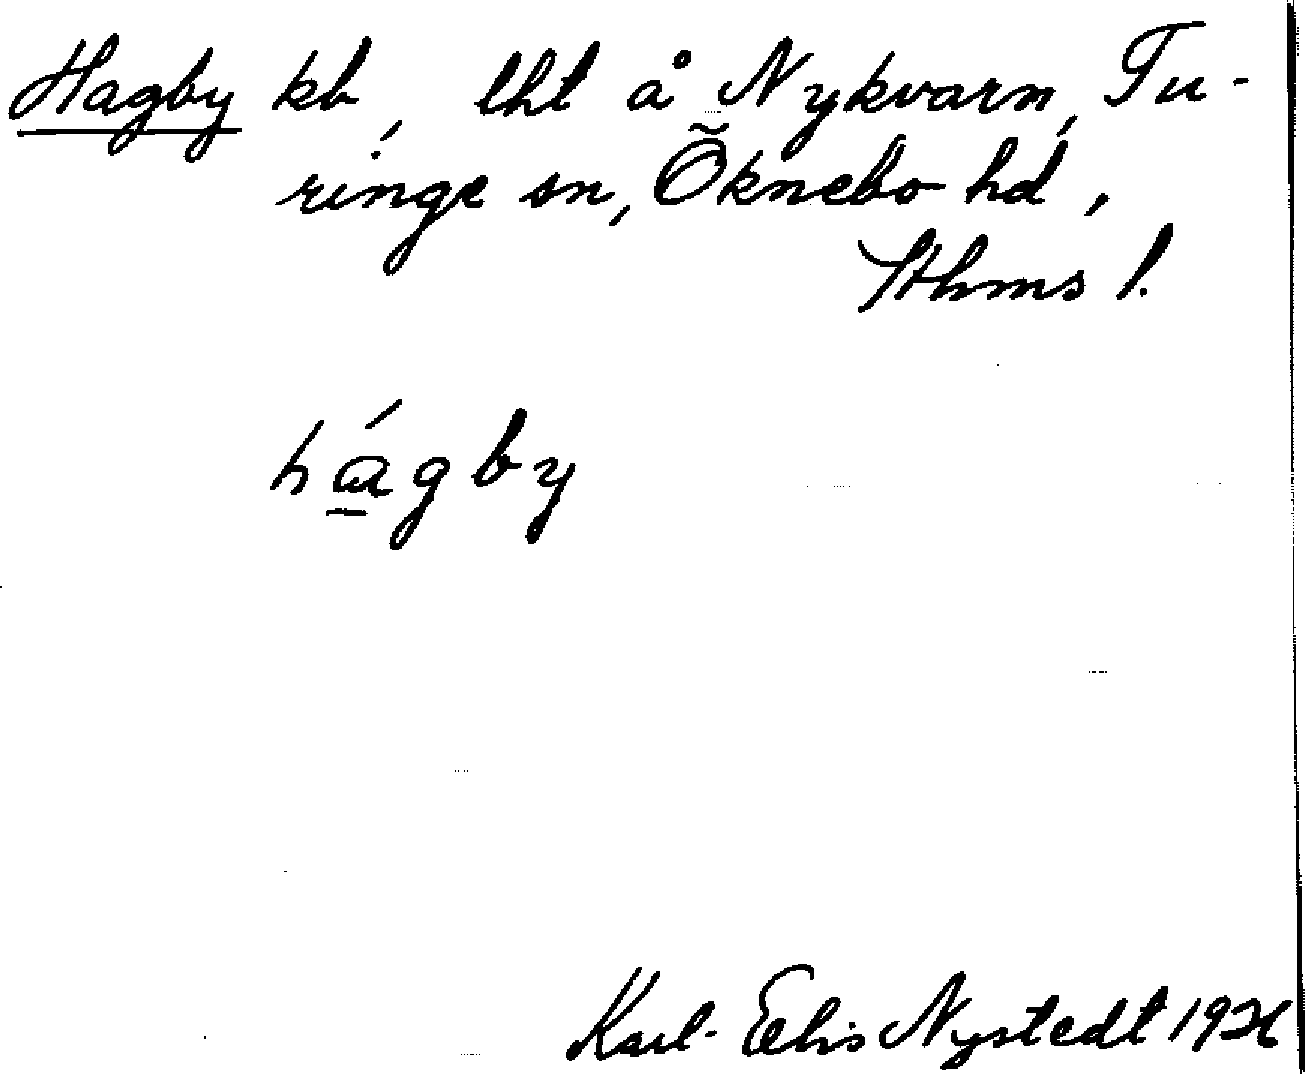 Hagby kb, lht å Nykvarn, Tu-
ringe sn, Öknebo hd,
Sthms l.
hágby
Karl-Elis Nystedt 1926